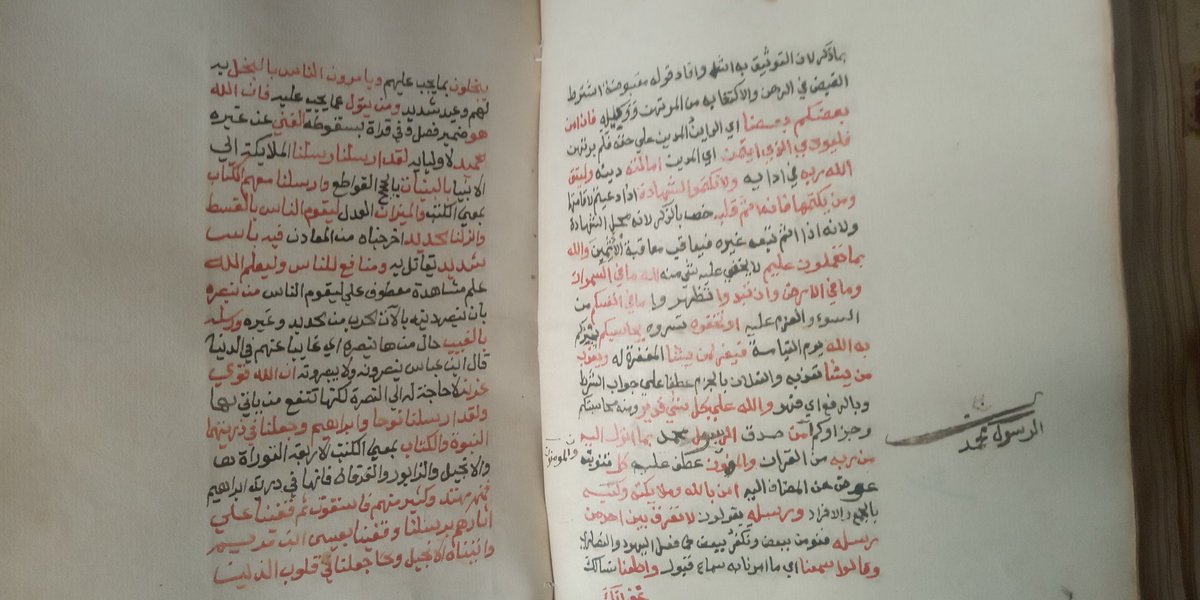 بما ذكر لان التوثيق به اشد وافاد قوله مقبوضة اشتراط
القبض في الرهن والاكتفا به من المرتهن ووكيله فان امن
بعضكم بعضا اي الداين المدين علي حقه فلم يرتهن
فليود الذي ايتمن اي المدين امانته دينه وليتق
الله ربه في ادايه ولا تكتموا الشهادة اذا دعيتم لاقامتها
ومن يكتمها فانه اثم قلبه خص بالذكر لانه محل الشهادة
ولانه اذا اثم تبعه غيره فيعاقب معاقبة الاثمين والله
بما تعملون عليم لا يخفي عليه شي منه لله ما في السموات
وما في الارض وان تبدوا تظهروا ما في انفسكم من
السوء والعزم عليه او تخفوه تسروه يحاسبكم يخبركم
به الله يوم القيامة فيغفر لمن يشا المغفرة له ويعذب
من يشا تعذيبه والفعلان بالجزم عطفا علي جواب الشرط
وبالرفع اي فهو والله علي كل شي قدير ومنه محاسبتكم
وجزاوكم امن صدق الرسول محمد بما انزل اليه
من ربه من القران والمومنون عطف عليه كل تنوينه
عوض عن المضاف اليه امن بالله وملايكته وكتبه
بالجمع والافراد ورسله يقولون لا نفرق بين احد من
رسله فنومن ببعض ونكفر ببعض كما فعل اليهود والنصاري
وقالوا سمعنا اي ما امرنا به سماع قبول واطعنا نسالك
غفرانك
والمومنون
الرسول محمد
يبخلون بما يجب عليهم ويامرون الناس بالبخل به
لهم وعيد شديد ومن يتول عما يجب عليه فان الله
هو ضمير فصل وفي قراة بسقوطه الغني عن غيره
الحميد لاوليايه لقد ارسلنا رسلنا الملايكة الي
الانبيا بالبينات بالحجج القواطع وانزلنا معهم الكتاب
بمعني الكتب والميزان العدل ليقوم الناس بالقسط
وانزلنا الحديد اخرجناه من المعادن فيه باس
شديد يقاتل به ومنافع للناس وليعلم الله
علم مشاهدة معطوف علي ليقوم الناس من ينصره
بان ينصر دينه بالات الحرب من الحديد وغيره ورسله
بالغيب حال من ها ينصره اي غايبا عنهم في الدنيا
قال ابن عباس ينصرونه ولا يبصرونه ان الله قوي
عزيز لا حاجة له الي النصرة لكنها تنفع من ياتي بها
ولقد ارسلنا نوحا وابراهيم وجعلنا في ذريتهما
النبوة والكتاب بمعني الكتب الاربعة التوراة
والانجيل والزابور والفرقان فانها في ذرية ابراهيم
فمنهم مهتد وكثير منهم فاسقون ثم قفينا علي
اثارهم برسلنا وقفينا بعيسي ابن مريم
واتيناه الانجيل وجعلنا في قلوب الذين